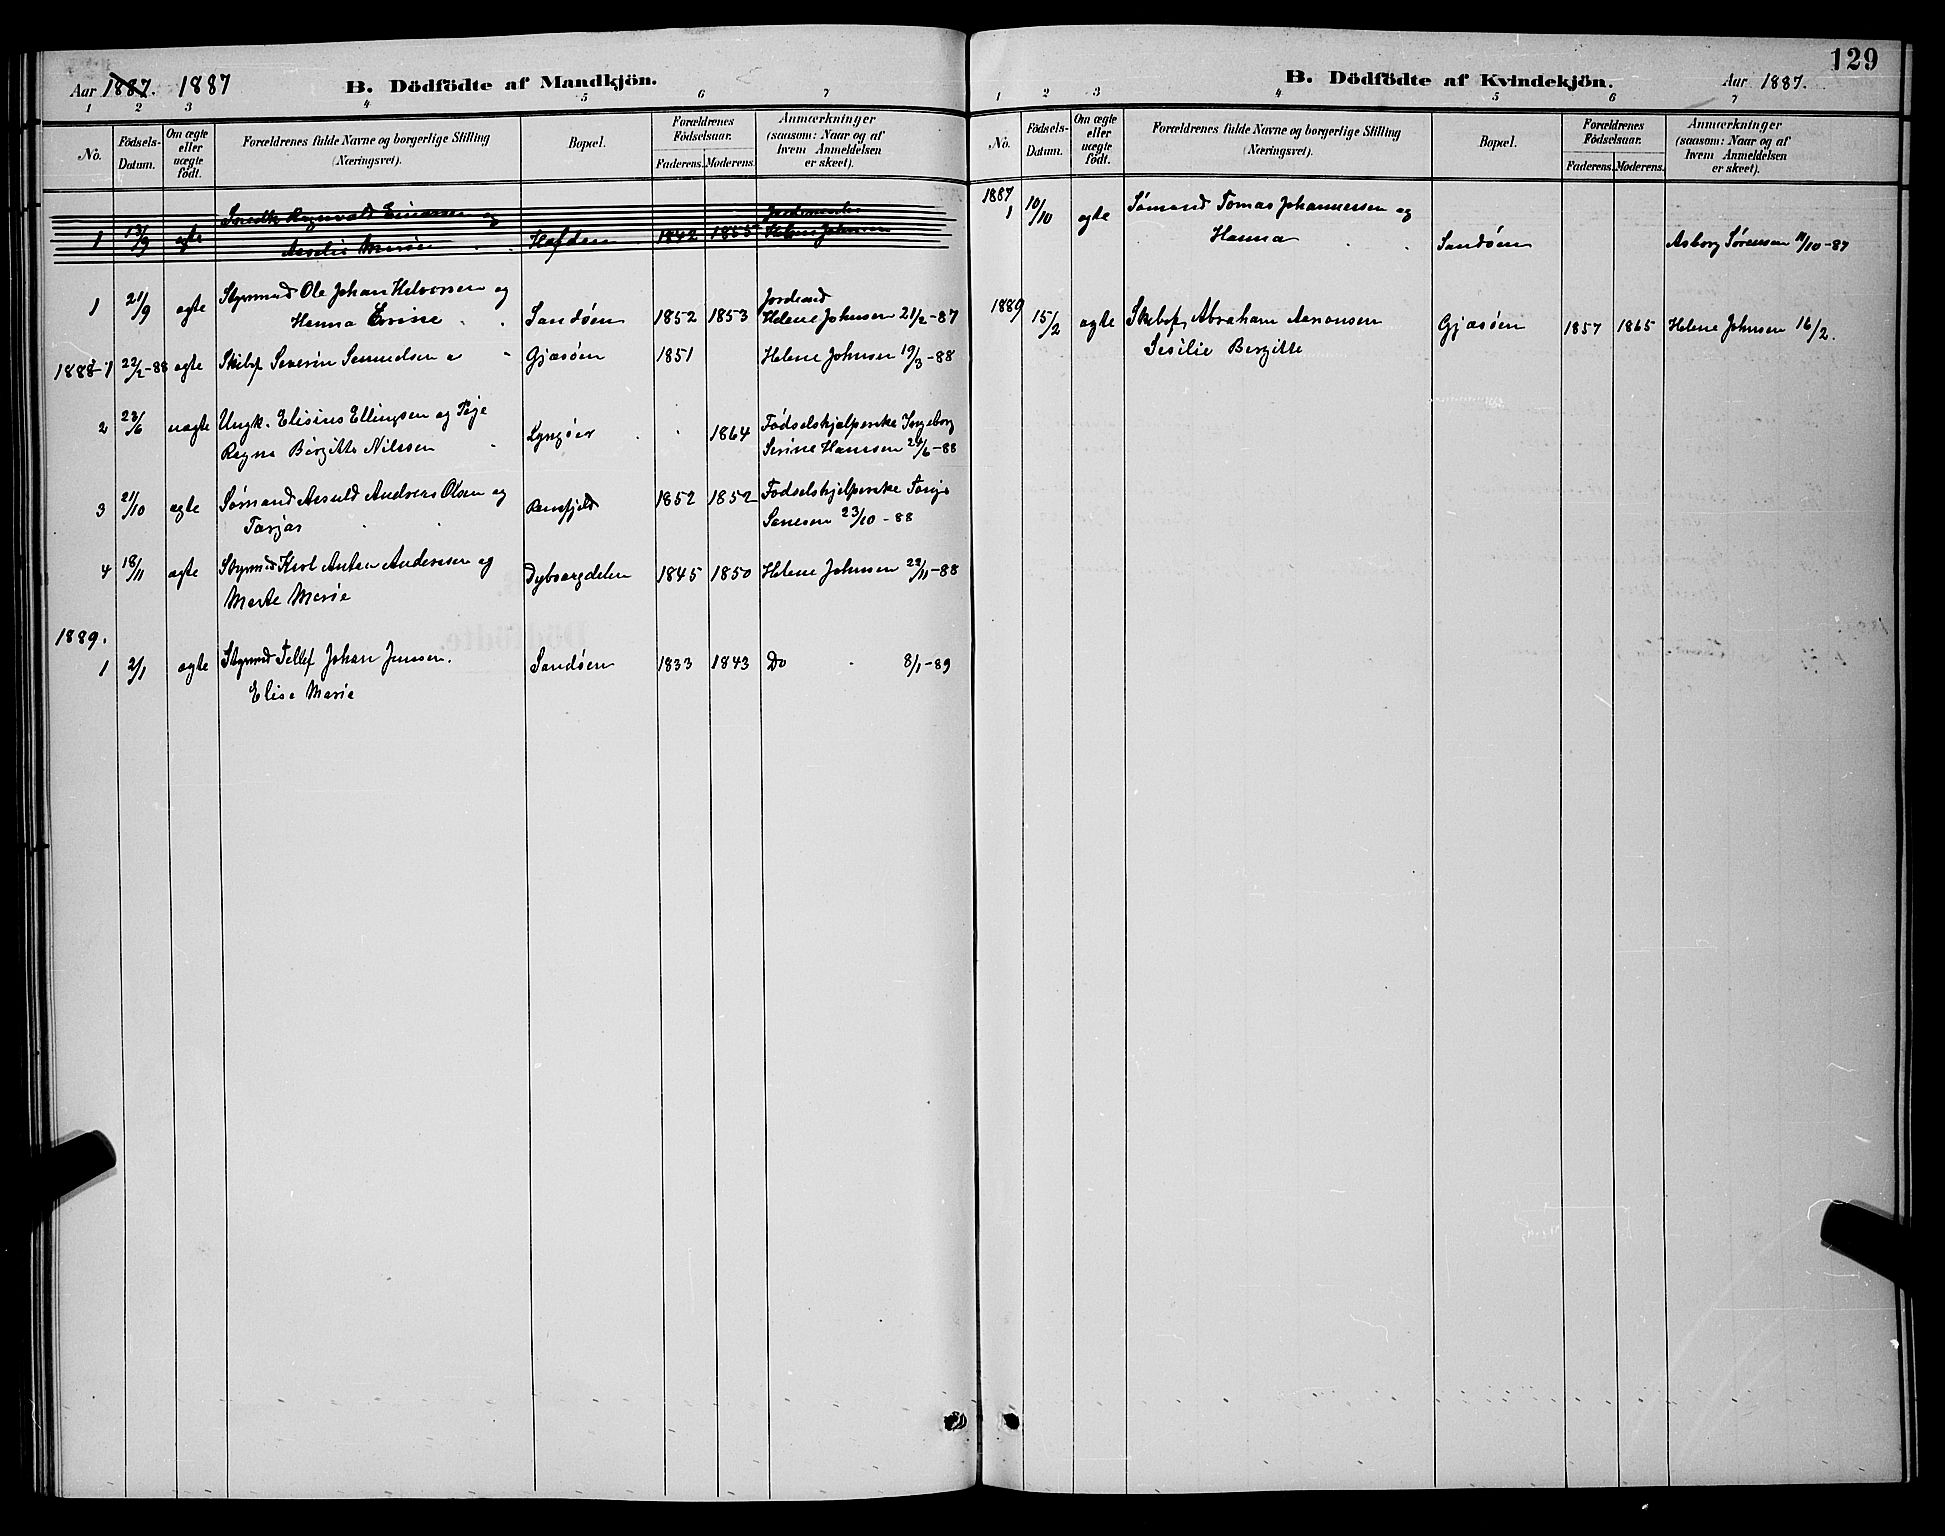 129
Aar 1887. 1887 B. Dödfödte af Mandkjön.
1 2 3 4 5 6 7
No. Födsels-Datum. Om ægte eller uægte födt. Forældrenes fulde Navne og borgerlige Stilling (Næringsvei). Bopæl. Forældrenes Födselsaar. Faderens. Moderens. Anmærkninger (saasom: Naar og af hvem Anmeldelsen er skeet).
Ragnvald Einarsen og Jordemoder
1 13/9 ægte Marie Hafden 1842 1855 Helene Johnsen
Styrmand Ole Johan Halvorsen og Jordmod
1 21/9 ægte Hanna Sandøen 1852 1853 Helene Johnsen 21/2-87
1888-1 22/2-88 ægte Skibsf Severin Gjæsøen 1851 Helene Johnsen 19/3-88
2 23/6 uægte Ungk. Elisius Ellingsen og Pige Lyngøer 1864 Fødselshjelperske Ingeborg
Ragna Birgitte Nilssen Serine Hansen 24/6-88
3 21/10 ægte Sømand Andreas Olsen og 1852 1852 Fødselshjelperske
Tarjar 23/10-88
4 18/11 ægte Styrmd Karl Anton Andersen og Dybvaagdalen 1845 1850 Helene Johnsen 22/11-88
Marte Marie
1889.
1 2/1 ægte Styrmd Tellef Johan Jensen. Sandøen 1833 1843 Do 8/1-89
Elise Marie
B. Dödfödte af Kvindekjön. Aar 1887.
1 2 3 4 5 6 7
No. Födsels-Datum. Om ægte eller uægte födt. Forældrenes fulde Navne og borgerlige Stilling (Næringsvei). Bopæl. Forældrenes Födselsaar. Faderens. Moderens. Anmærkninger (saasom: Naar og af hvem Anmeldelsen er skeet).
1887
1 10/10 ægte Sømand Tomas Johannessen og
Hanna Sandøen Asborg Sørensen 11/10-87
1889
15/2 ægte Skibsf. Abraham Aanonsen Gjæsøen 1857 1865 Helene Johnsen 16/2.
Sesilie Bergitte